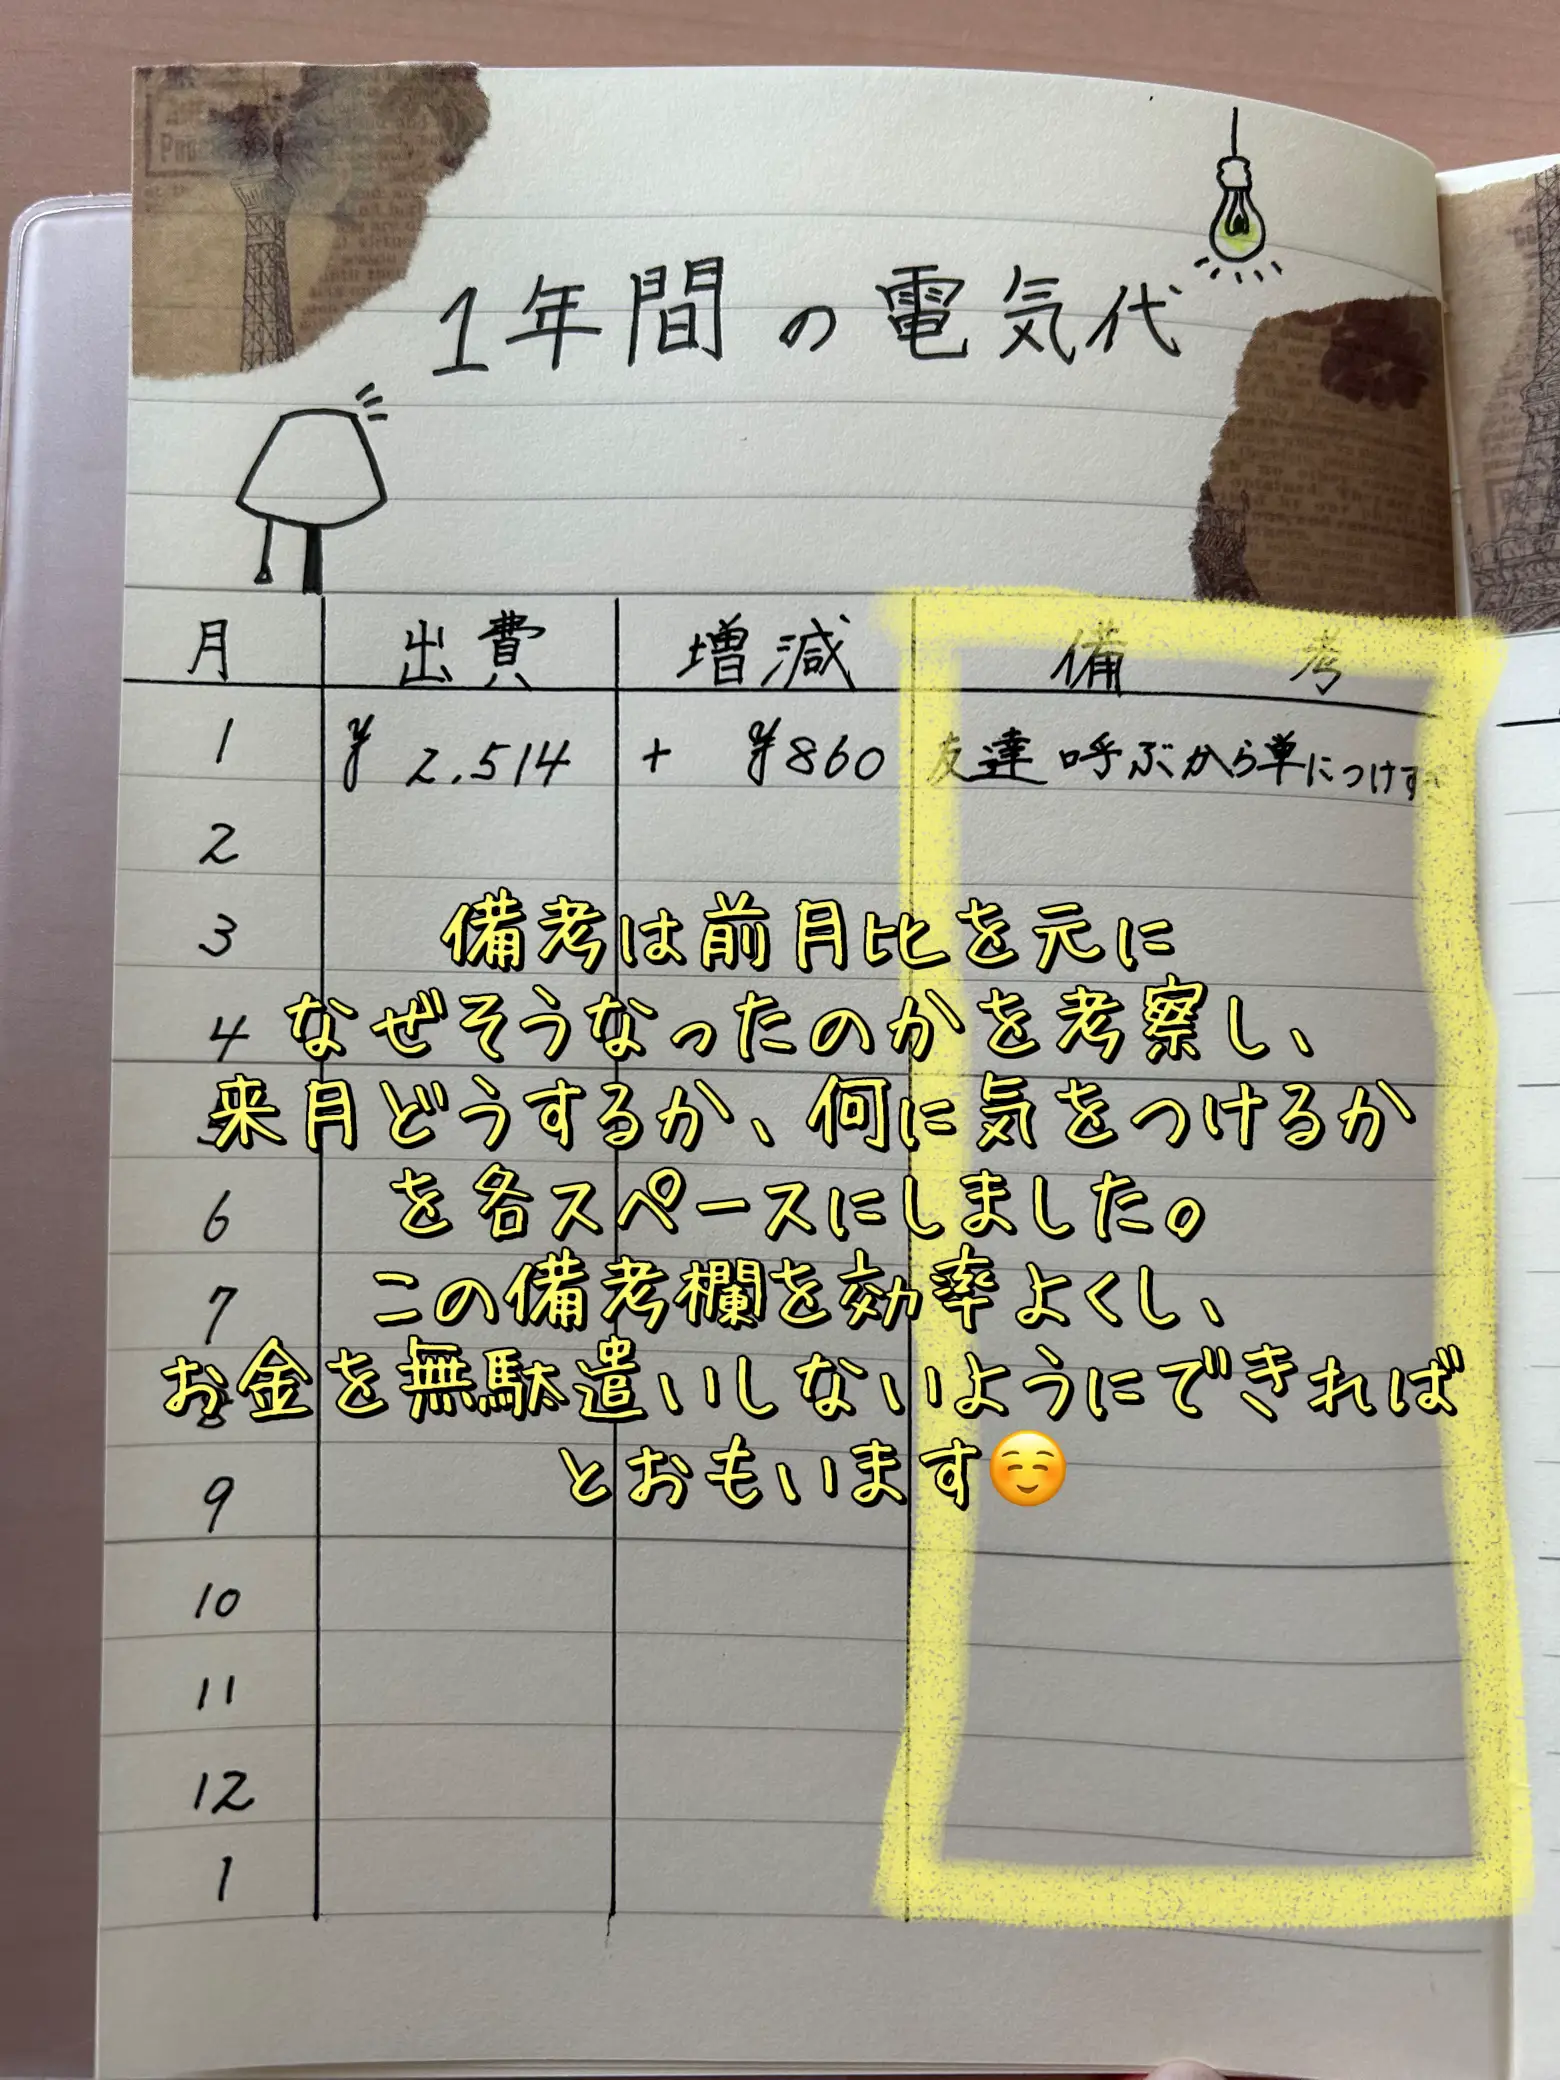 1年間の電気代
月 出費 増減 備考
1 ¥2,514 + ¥860 友達呼ぶから単につけす
2
3
4
6
7
8
9
10
11
12
1
備考は前月比を元に
なぜそうなったのかを考察し、
来月どうするか、何に気をつけるか
を各スペースにしました。
この備考欄を効率よくし、
お金を無駄遣いしないようにできれば
とおもいます☺️